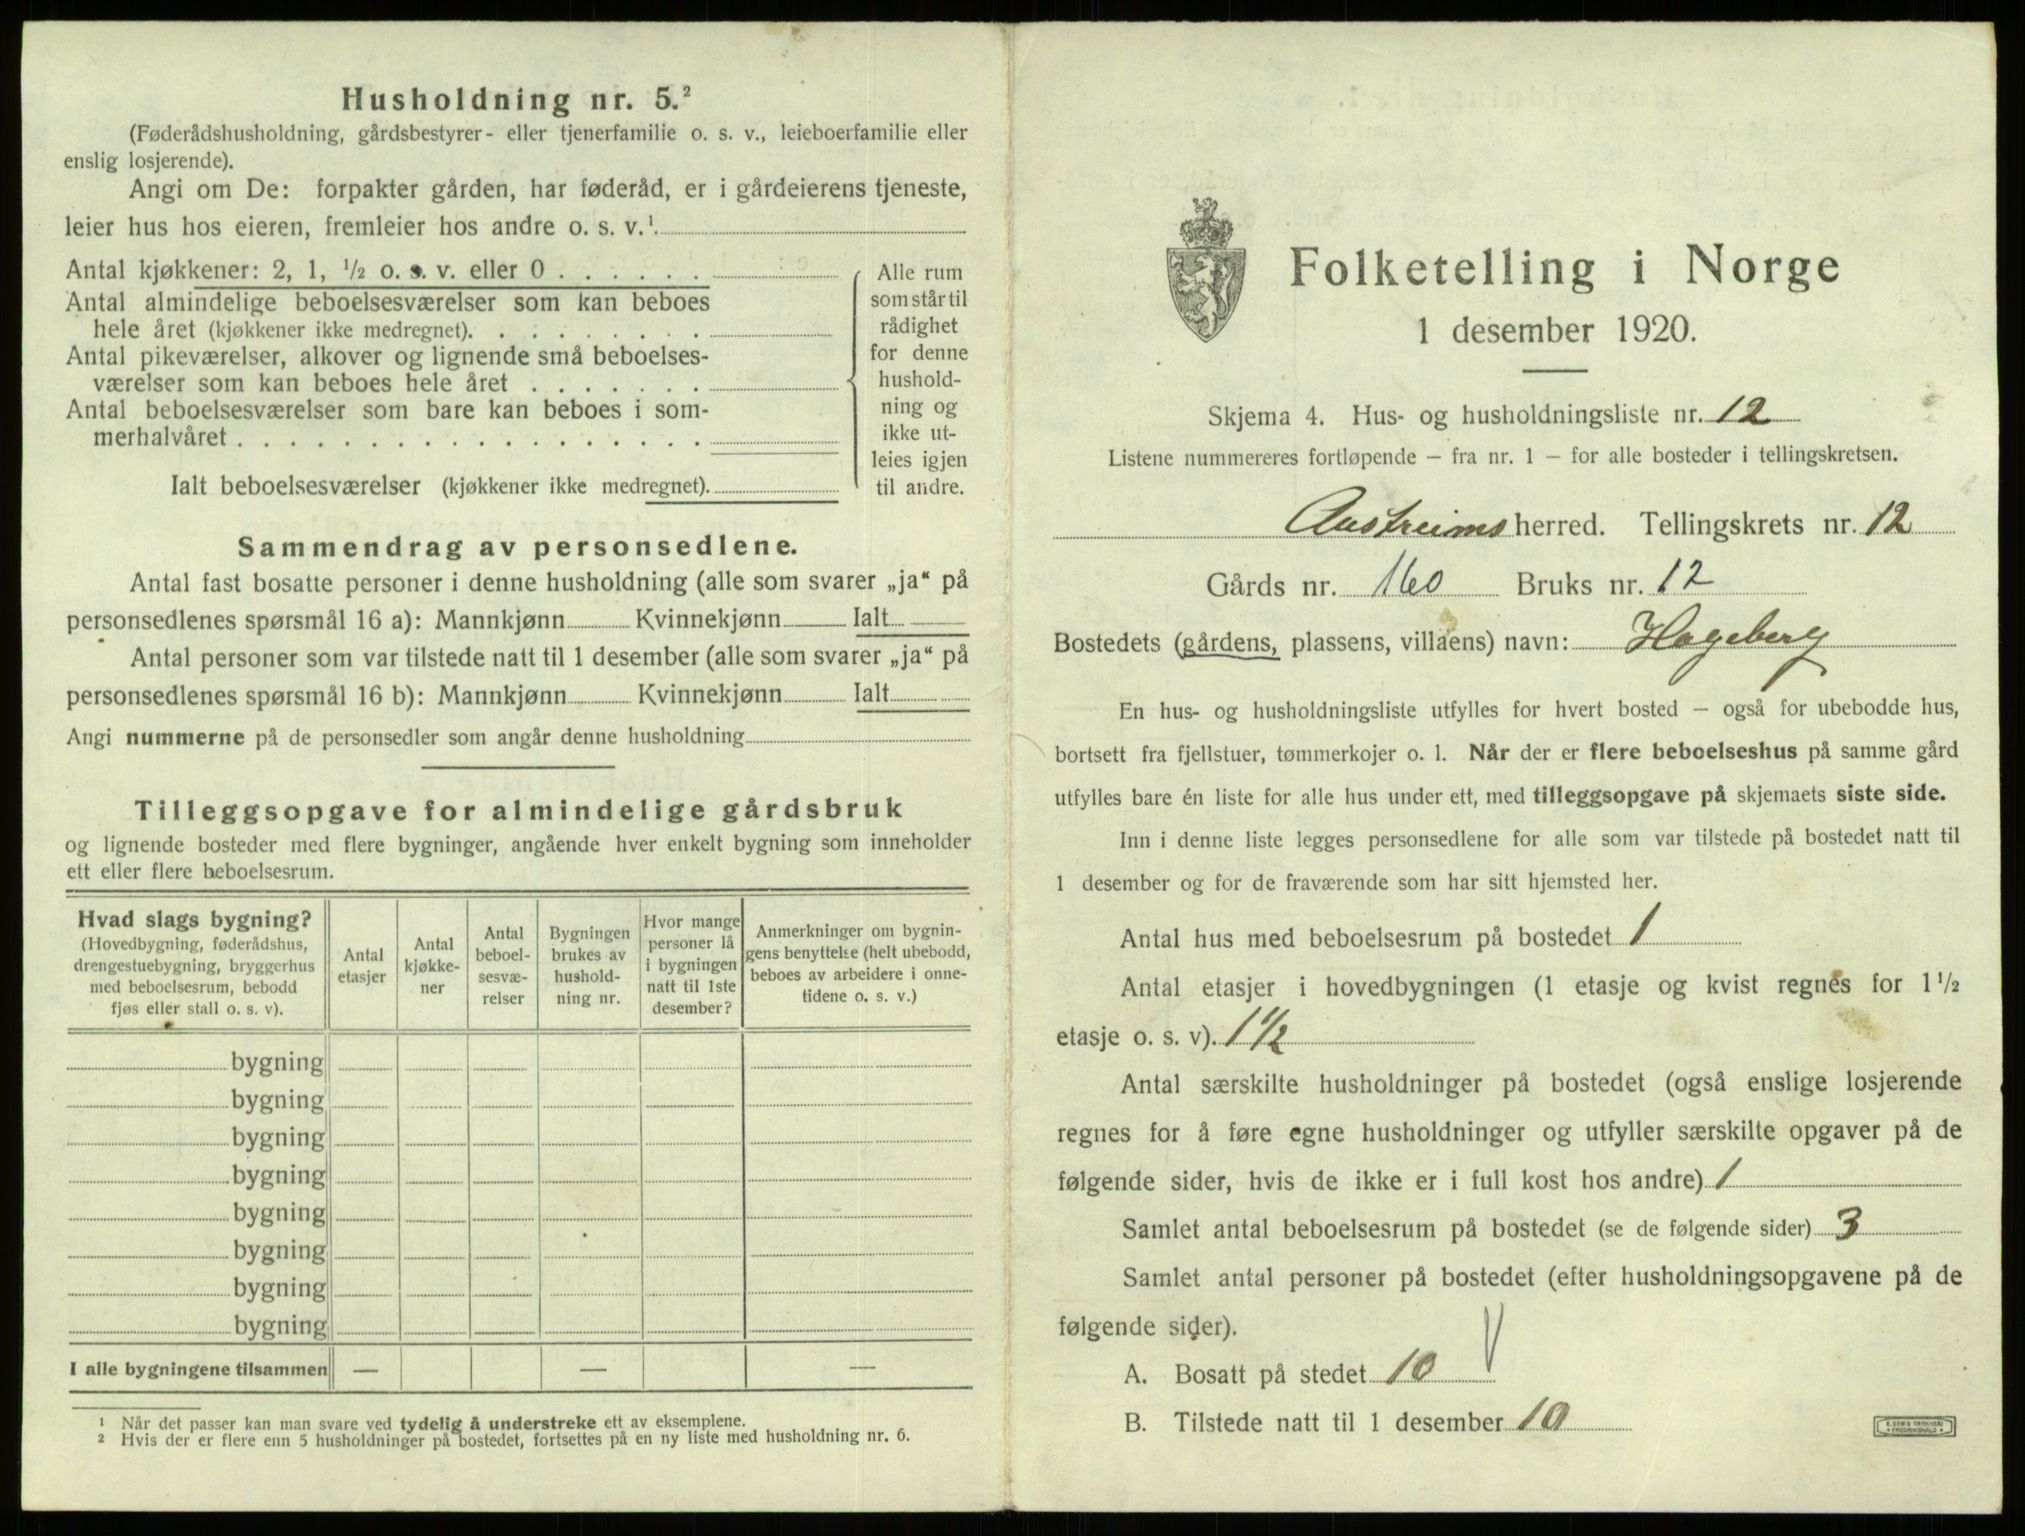 Husholdning nr. 5.²
(Føderådshusholdning, gårdsbestyrer- eller tjenerfamilie o. s. v., leieboerfamilie eller
enslig losjerende).
Angi om De: forpakter gården, har føderåd, er i gårdeierens tjeneste,
leier hus hos eieren, fremleier hos andre o. s. v.¹.
Antal kjøkkener: 2, 1, ½ o. s. v. eller 0 . . . . . .
Antal almindelige beboelsesværelser som kan beboes
hele året (kjøkkener ikke medregnet). . . . . . . . .
Antal pikeværelser, alkover og lignende små beboelses-
værelser som kan beboes hele året . . . . . . .
Antal beboelsesværelser som bare kan beboes i som-
merhalvåret . . . . . . . . . . . . . . . . . .
Ialt beboelsesværelser (kjøkkener ikke medregnet).
Alle rum
som står til
rådighet
for denne
hushold-
ning og
ikke ut-
leies igjen
til andre.
Sammendrag av personsedlene.
Antal fast bosatte personer i denne husholdning (alle som svarer „ja“ på
personsedlenes spørsmål 16 a): Mannkjønn Kvinnekjønn Ialt
Antal personer som var tilstede natt til 1 desember (alle som svarer „ja“ på
personsedlenes spørsmål 16 b): Mannkjønn Kvinnekjønn Ialt
Angi nummerne på de personsedler som angår denne husholdning
Tilleggsopgave for almindelige gårdsbruk
og lignende bosteder med flere bygninger, angående hver enkelt bygning som inneholder
ett eller flere beboelsesrum.
Hvad slags bygning?
(Hovedbygning, føderådshus,
drengestuebygning, bryggerhus
med beboelsesrum, bebodd
fjøs eller stall o. s. v).
Antal
etasjer
Antal
kjøkke-
ner
Antal
beboel-
sesvæ-
relser
Bygningen
brukes av
hushold-
ning nr.
Hvor mange
personer lå
i bygningen
natt til 1ste
desember?
Anmerkninger om bygnin-
gens benyttelse (helt ubebodd,
beboes av arbeidere i onne-
tidene o. s. v.)
bygning
bygning
bygning
bygning
bygning
bygning
bygning
bygning
I alle bygningene tilsammen — — —
¹ Når det passer kan man svare ved tydelig å understreke ett av eksemplene.
² Hvis der er flere enn 5 husholdninger på bostedet, fortsettes på en ny liste med husholdning nr. 6.
Folketelling i Norge
1 desember 1920.
Skjema 4. Hus- og husholdningsliste nr. 12
Listene nummereres fortløpende – fra nr. 1 – for alle bosteder i tellingskretsen.
Austreims herred. Tellingskrets nr. 12
Gårds nr. 160 Bruks nr. 12
Bostedets (gårdens, plassens, villaens) navn: Hageberg
En hus- og husholdningsliste utfylles for hvert bosted – også for ubebodde hus,
bortsett fra fjellstuer, tømmerkojer o. l. Når der er flere beboelseshus på samme gård
utfylles bare én liste for alle hus under ett, med tilleggsopgave på skjemaets siste side.
Inn i denne liste legges personsedlene for alle som var tilstede på bostedet natt til
1 desember og for de fraværende som har sitt hjemsted her.
Antal hus med beboelsesrum på bostedet 1
Antal etasjer i hovedbygningen (1 etasje og kvist regnes for 1½
etasje o. s. v). 1½
Antal særskilte husholdninger på bostedet (også enslige losjerende
regnes for å føre egne husholdninger og utfyller særskilte opgaver på de
følgende sider, hvis de ikke er i full kost hos andre) 1
Samlet antal beboelsesrum på bostedet (se de følgende sider) 3
Samlet antal personer på bostedet (efter husholdningsopgavene på de
følgende sider).
A. Bosatt på stedet 10
B. Tilstede natt til 1 desember 10
E. SEM'S TRYKKERI
FREDRIKSHALD